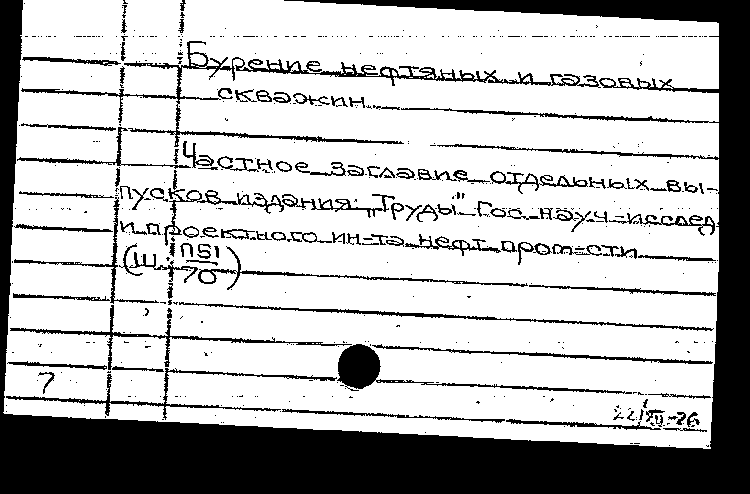 Бурение нефтяных и газовых
скважин
Частное заглавие отдельных вы-
пусков издания: „Труды" Гос. науч-исслед
и проектного ин-та нефт. пром-сти
(Ш: П51
70)
7
22/XII-26